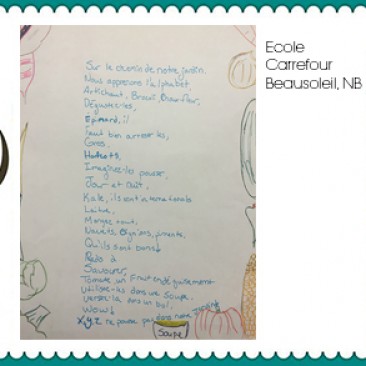 Sur le chemin de notre jardin.
Nous apprenons l'alphabet,
Artichaut, Brocoli, Chou-fleur,
Dégustez-les,
Epinard, il
Faut bien arroser les,
Gros,
Haricots,
Imaginez-les pousser,
Jour et nuit,
Kale, ils sont internationals
Laitue,
Mangez-nous,
Navets, Oignons, piments,
Qu'ils sont bons!
Radis à
Savourer,
Tomate un fruit en déguisement
Utilisez-les dans une soupe.
Versez-la dans un bol,
Wow!
X,Y,Z ne pousse pas dans notre jardin
Soupe
Ecole
Carrefour
Beausoleil, NB